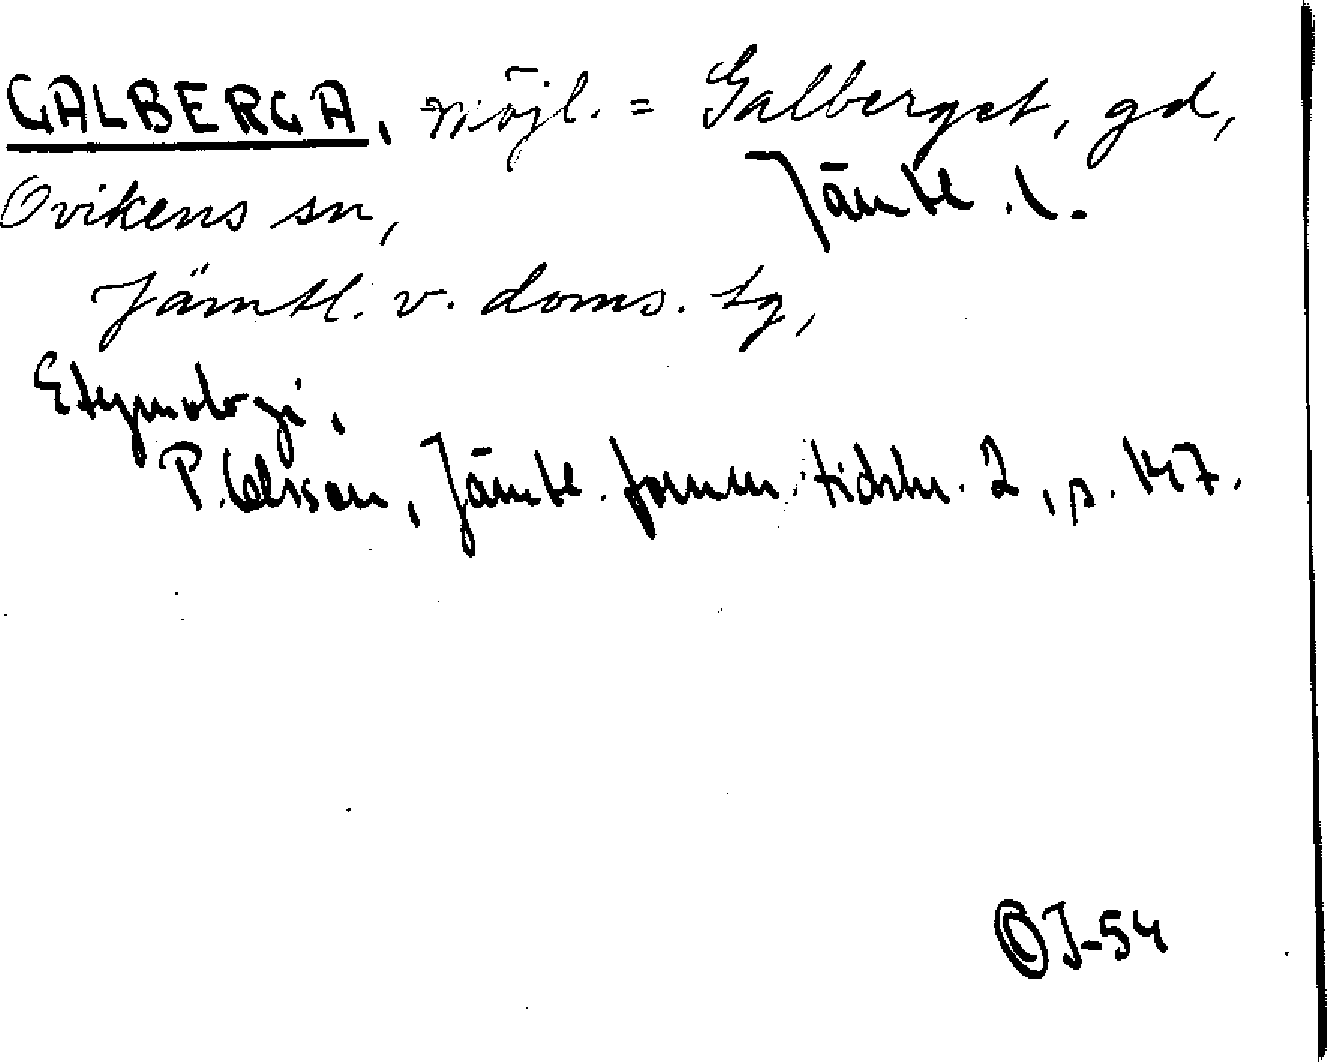 GALBERGA, möjl. = Galberget, gd,
Ovikens sn, Jämtl. l.
Jämtl. v. doms. tg,
Etymologi,
P. Olsson, Jämtl. fornm. tidskr. 2, s. 147.
©J-54